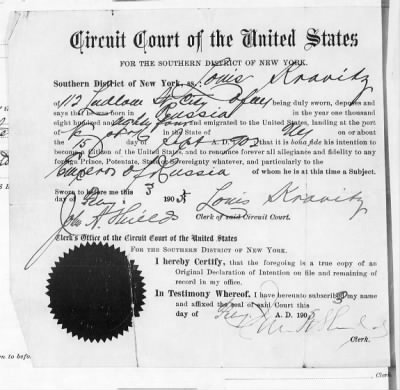 Circuit Court of the United States
FOR THE SOUTHERN DISTRICT OF NEW YORK.
Southern District of New York, ss. Louis Kravitz
of 113 Ludlow St City of NY being duly sworn, deposes and
says that he was born in Russia in the year one thousand
eight hundred and and emigrated to the United States, landing at the port
of in the State of NY on or about
the 15 day of Sept A. D. 190 that it is bona fide his intention to
become a Citizen of the United States, and to renounce forever all allegiance and fidelity to any
foreign Prince, Potentate, State or Sovereignty whatever, and particularly to the
Emperor of Russia of whom he is at this time a Subject.
Sworn to before me this 3
day of 1905 Louis Kravitz
John A. Shields
Clerk of said Circuit Court.
Clerk's Office of the Circuit Court of the United States
FOR THE SOUTHERN DISTRICT OF NEW YORK.
I hereby Certify, that the foregoing is a true copy of an
Original Declaration of Intention on file and remaining of
record in my office.
In Testimony Whereof, I have hereunto subscribed my name
and affixed the seal of said Court this 3
day of A. D. 1905
John A. Shields
Clerk.
Clerk